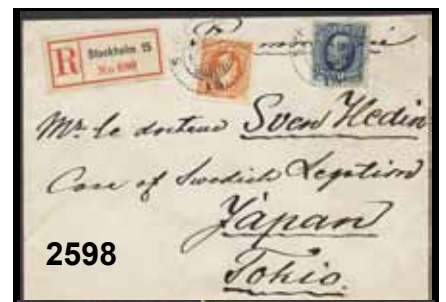 R Stockholm 15
No 690
Mr le docteur Sven Hedin
Care of Swedish Legation
Japan
Tokio.
2598